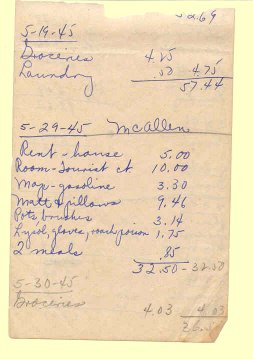 52.69
5-19-45
Groceries 4.25
Laundry .50 4.75
57.44
5-29-45 McAllen
Rent-house 5.00
Room-Tourist ct. 10.00
Map-gasoline 3.30
Matt & pillows 9.46
Pots, brushes 3.14
Lysol, gloves, roach poison 1.75
2 meals .85
32.50 - 32.50
5-30-45
Groceries 4.03 4.03